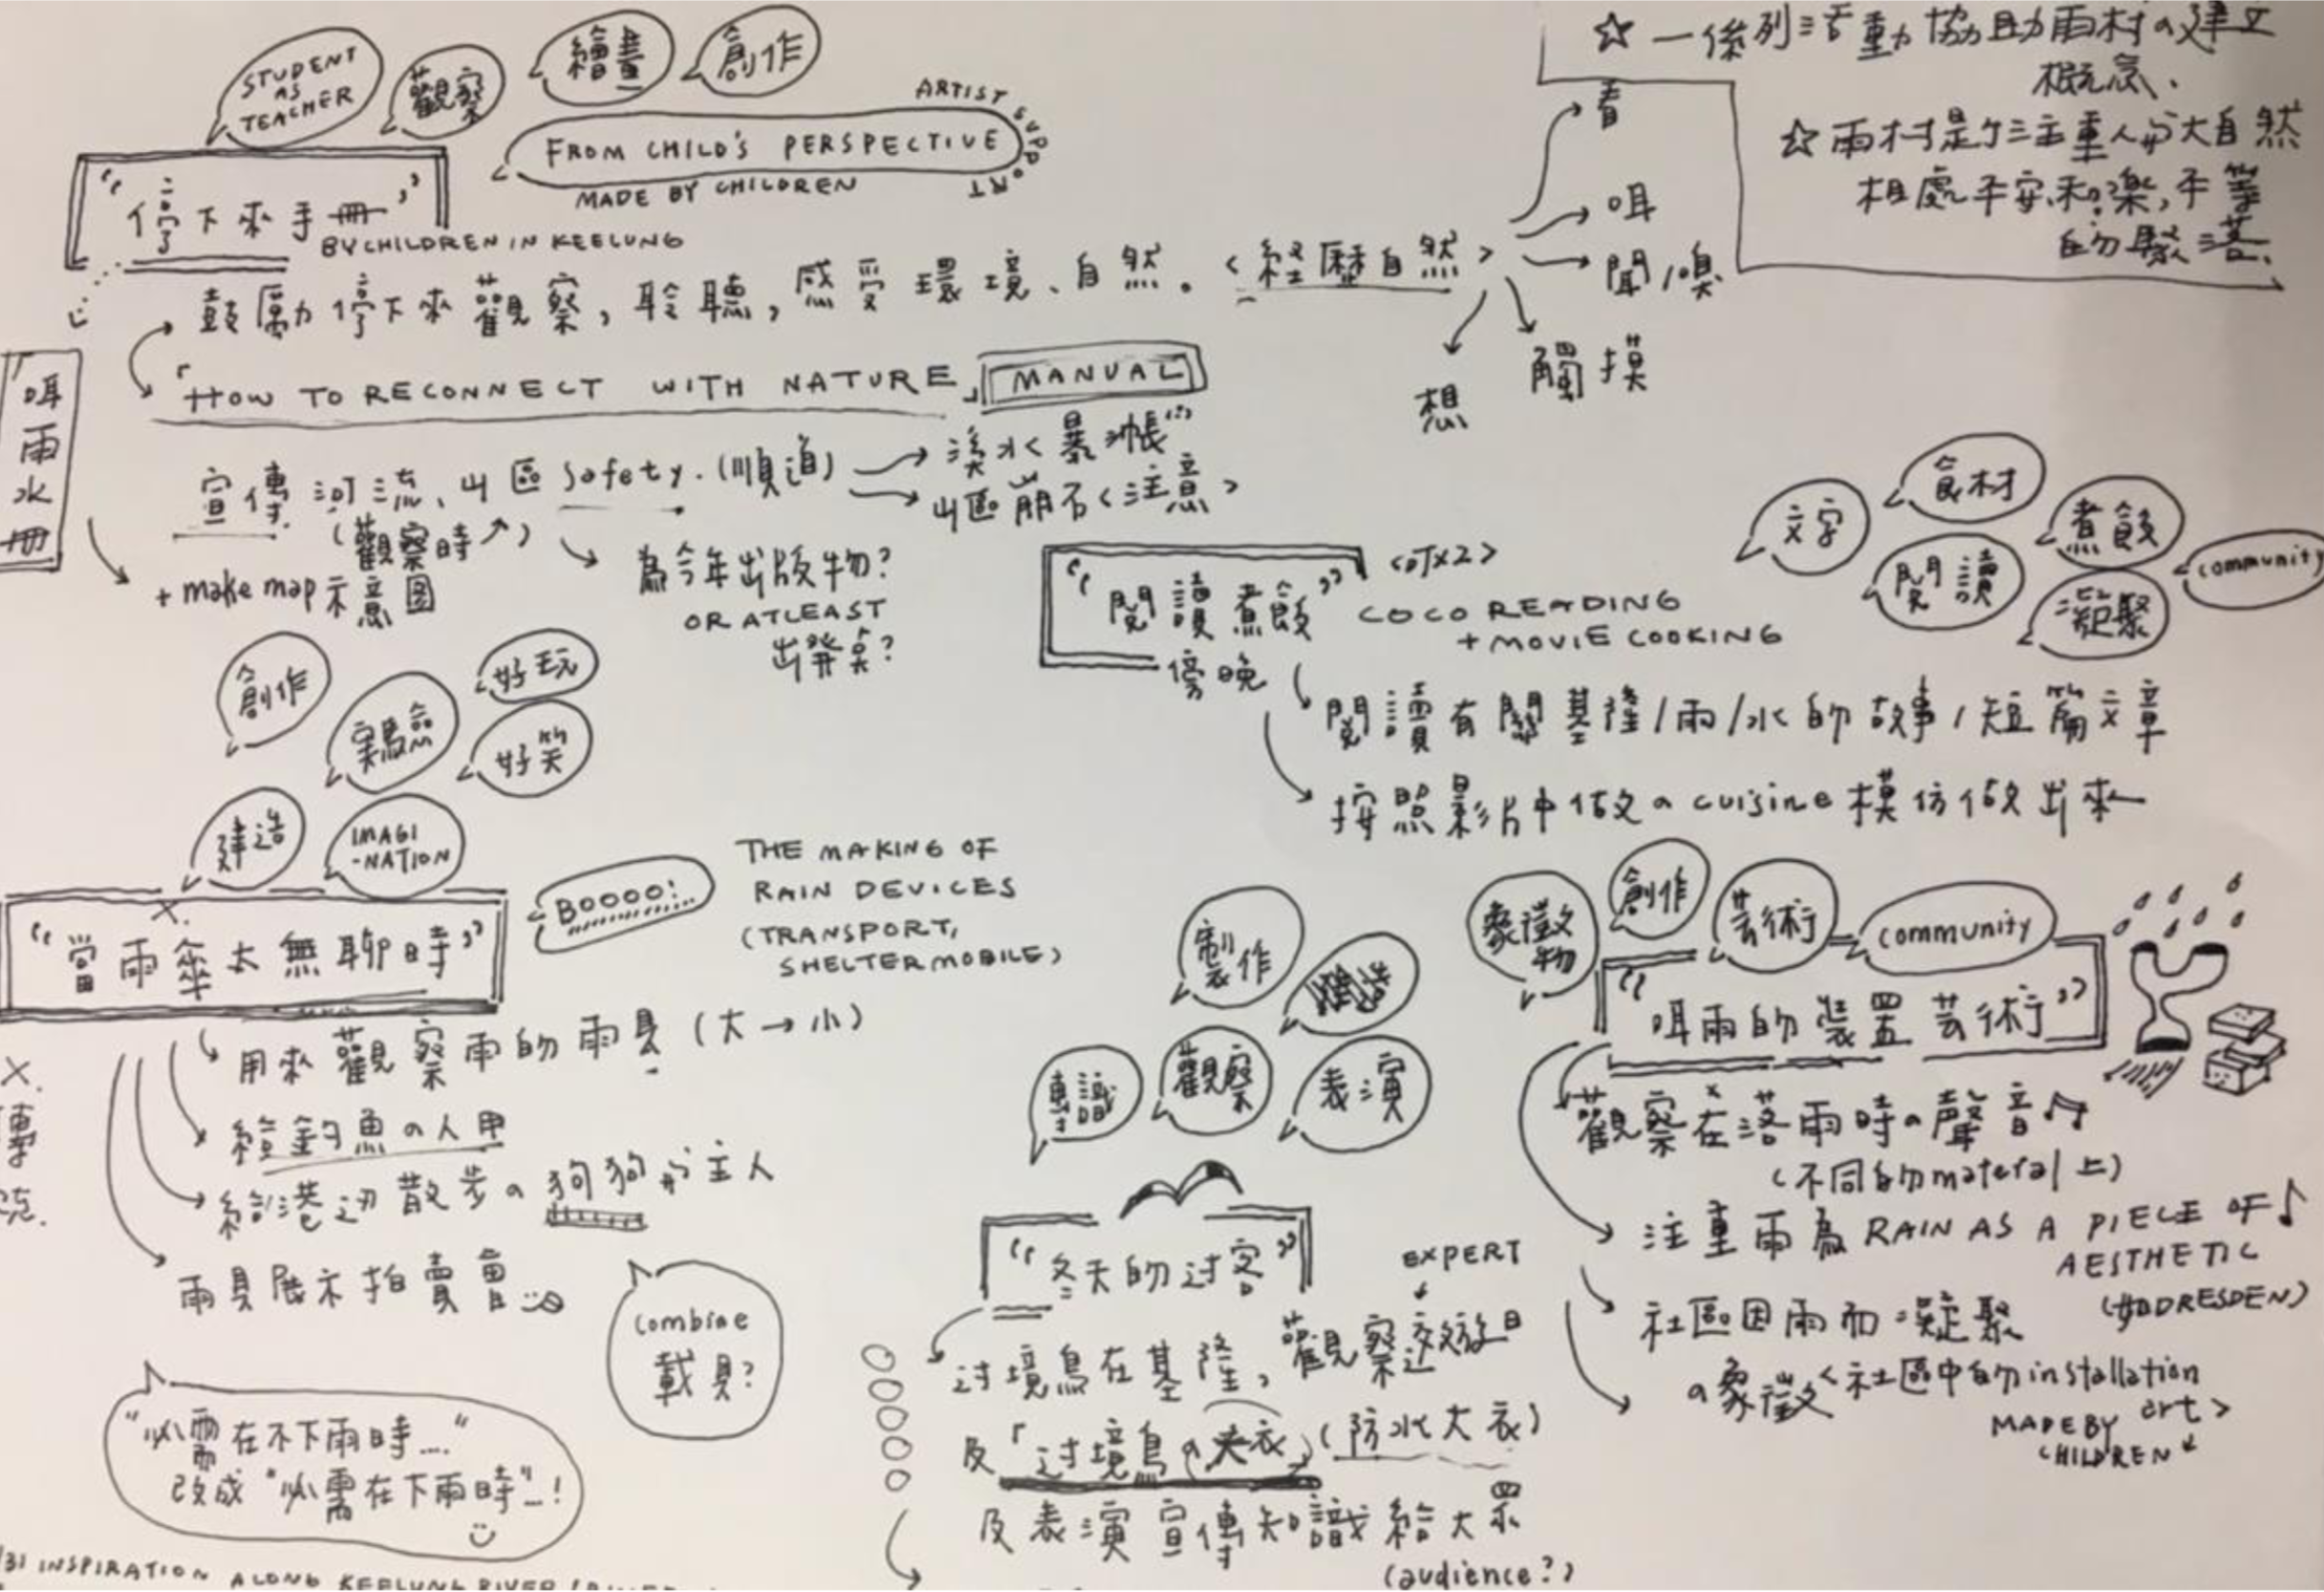 STUDENT
AS
TEACHER
觀察
繪畫
創作
“停下來手冊”
BY CHILDREN IN KEELUNG
FROM CHILD'S PERSPECTIVE
MADE BY CHILDREN
ARTIST SUPPORT
鼓勵停下來觀察，聆聽，感受環境、自然。<經歷自然>
看
咡
聞/嗅
觸摸
想
☆一係列活動協助雨村の建立
概念.
☆雨村是
主重人与大自然
相處平安、和樂，平等
的聚落.
「HOW TO RECONNECT WITH NATURE」 MANUAL
咡
雨
水
冊
宣傳河流、山區 safety. (順道)
(觀察時↗)
溪水暴漲
山區崩石<注意>
+ make map 示意圖
為今年出版物?
OR ATLEAST
出発点?
“閱讀煮飯”
傍晚
COCO READING
+ MOVIE COOKING
文字
食材
閱讀
煮飯
凝聚
community
閱讀有關基隆/雨/水的故事/短篇文章
按照影片中做の cuisine 模仿做出來
創作
実驗
好玩
好笑
建造
IMAGI
-NATION
“當雨傘太無聊時”
BOOOO!
THE MAKING OF
RAIN DEVICES
(TRANSPORT,
SHELTERMOBILE)
用來觀察雨的雨具 (大→小)
給釣魚の人用
給港边散步の狗狗与主人
雨具展示拍賣會
combine
載具?
“必需在不下雨時...."
改成 "必需在下雨時"...!
31 INSPIRATION ALONG KEELUNG RIVER
製作
專識
觀察
表演
“冬天的过客”
EXPERT
过境鳥在基隆，觀察
及「过境鳥の大衣」(防水大衣)
及表演宣傳知識給大眾
(audience?)
象徵物
創作
芸術
community
“咡雨的裝置芸術”
觀察在落雨時の聲音
(不同的 material 上)
注重雨為 RAIN AS A PIECE OF
AESTHETIC
(如DRESDEN)
社區因雨而凝聚
の象徵<社區中的 installation
art>
MADE BY
CHILDREN